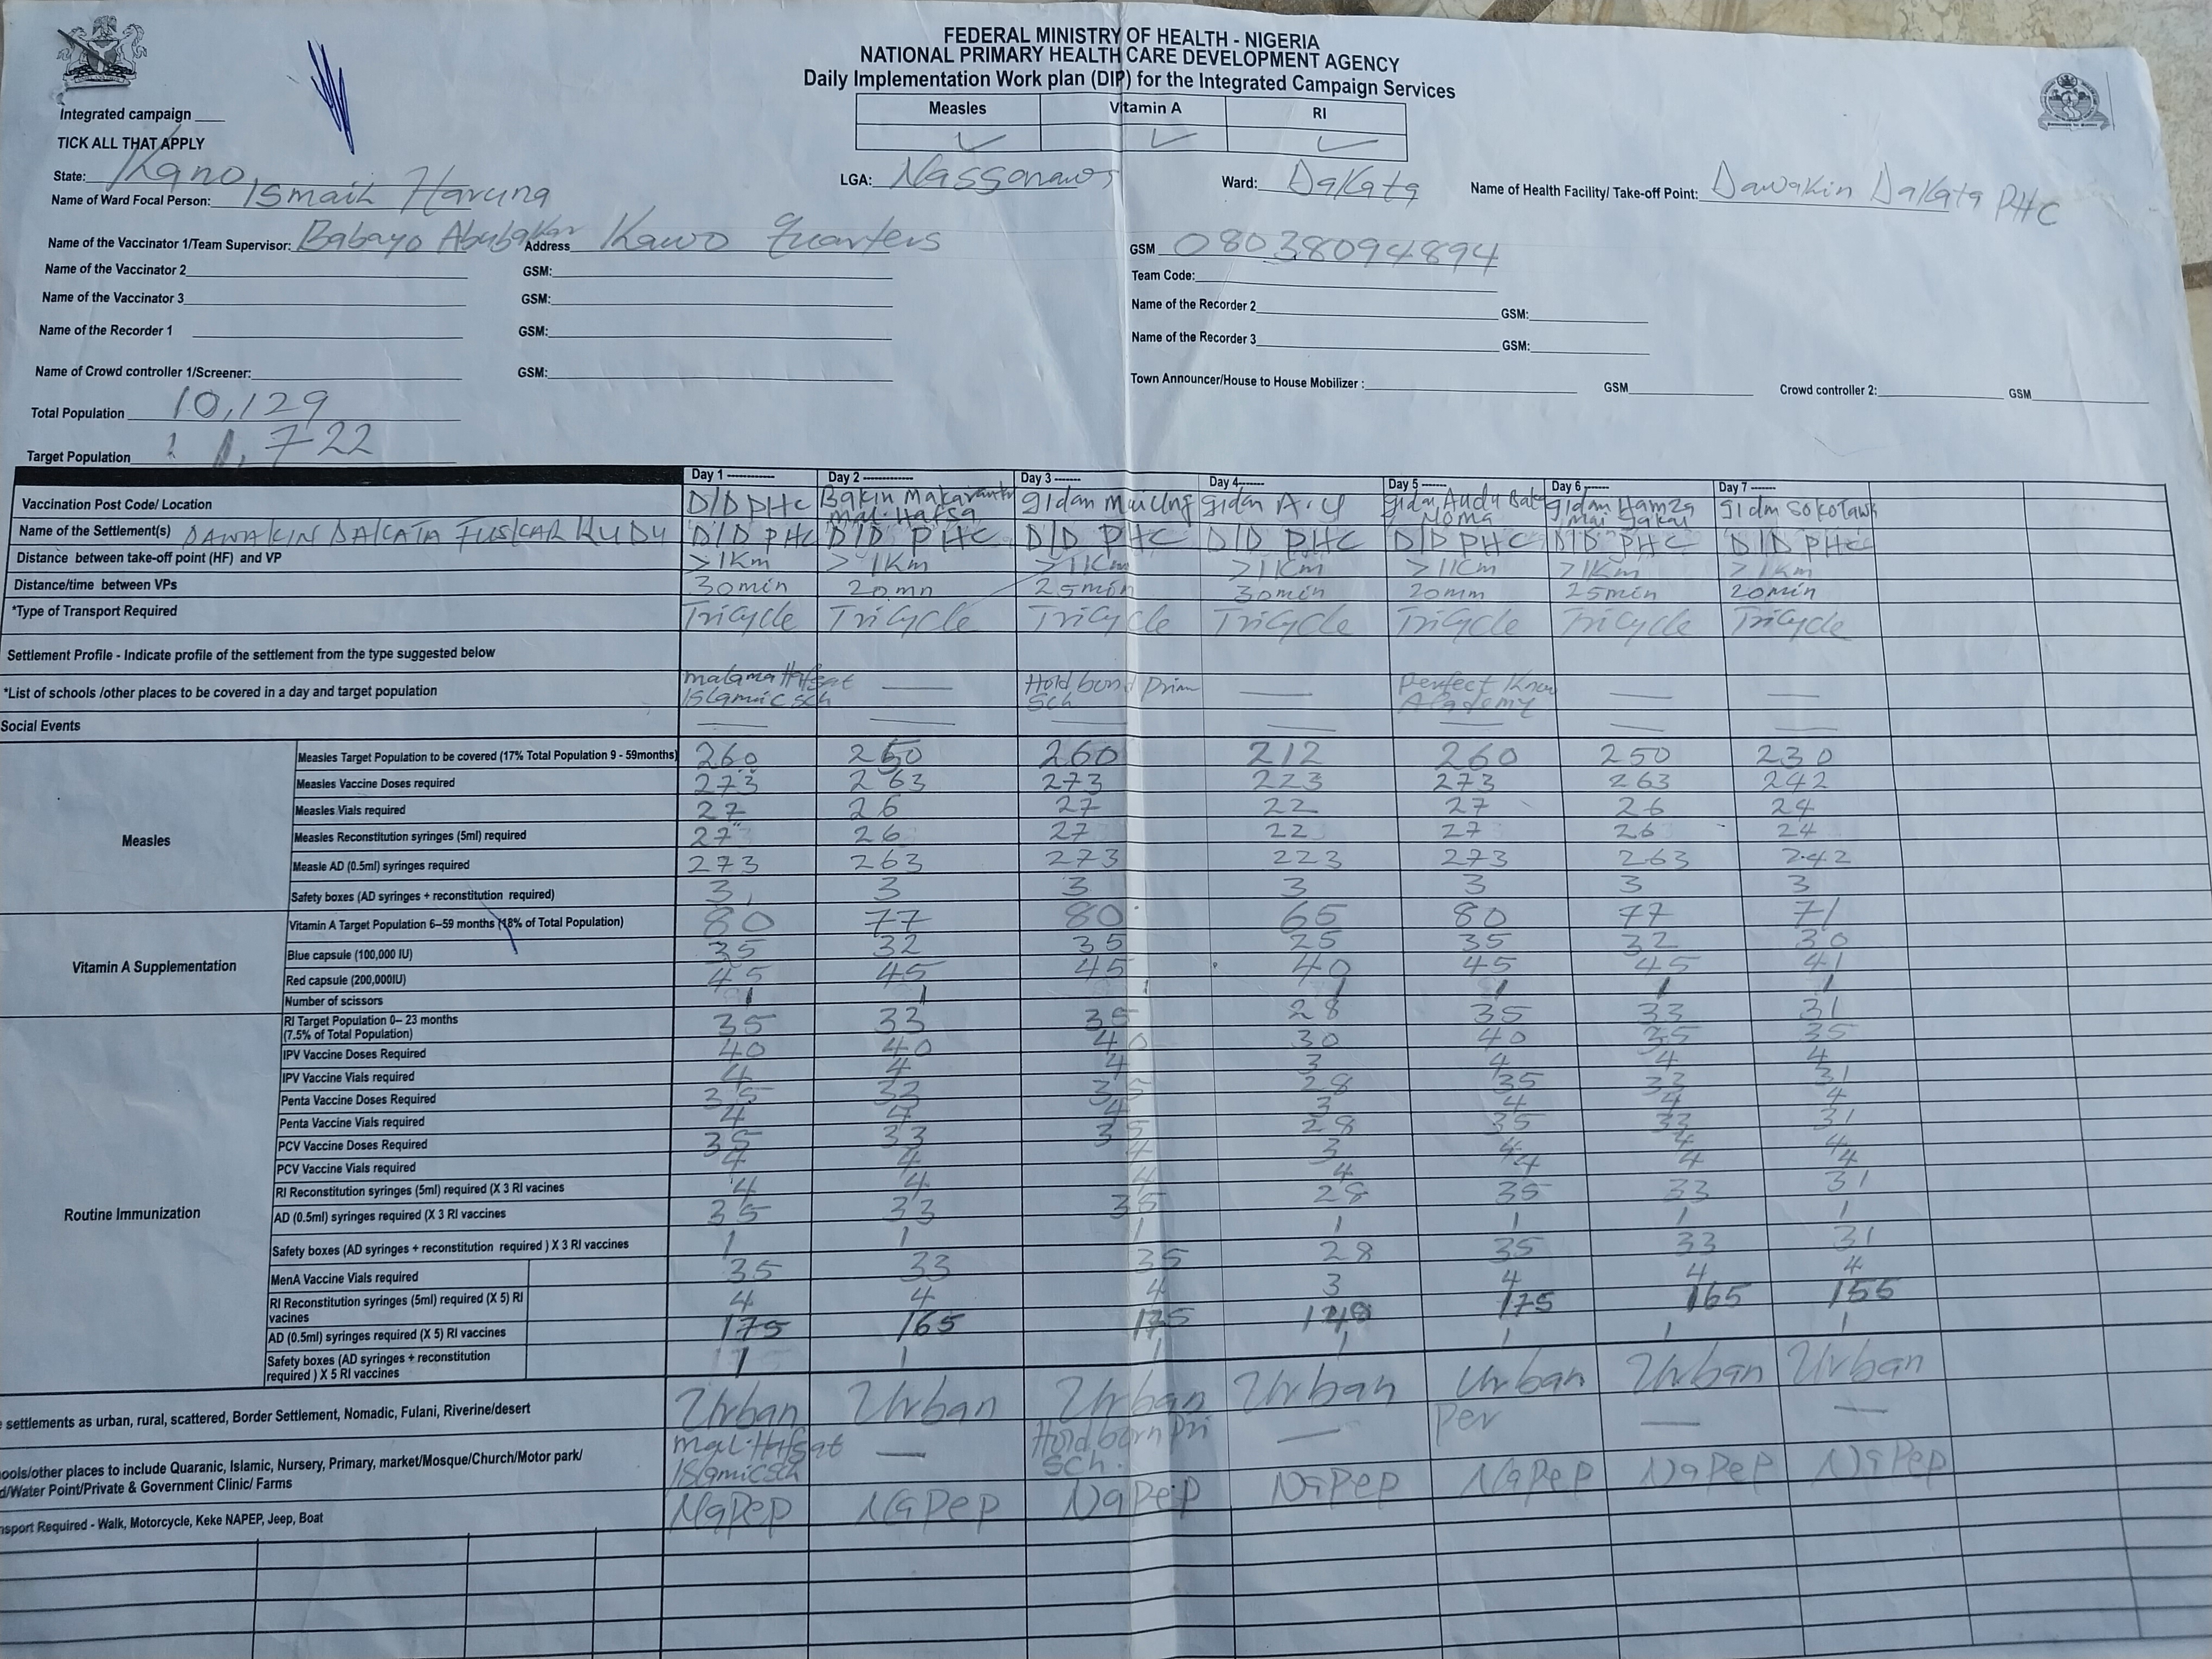 FEDERAL MINISTRY OF HEALTH - NIGERIA
NATIONAL PRIMARY HEALTH CARE DEVELOPMENT AGENCY
Daily Implementation Work plan (DIP) for the Integrated Campaign Services
Integrated campaign
TICK ALL THAT APPLY
Measles Vitamin A RI
State: Kano LGA: Nassarawa Ward: Dakata Name of Health Facility/ Take-off Point: Dawakin Dakata PHC
Name of Ward Focal Person: Ismail Haruna
Name of the Vaccinator 1/Team Supervisor: Babayo Abubakar Address Kawo Quarters GSM 08038094894
Name of the Vaccinator 2 GSM: Team Code:
Name of the Vaccinator 3 GSM: Name of the Recorder 2 GSM:
Name of the Recorder 1 GSM: Name of the Recorder 3 GSM:
Name of Crowd controller 1/Screener: GSM: Town Announcer/House to House Mobilizer : GSM Crowd controller 2: GSM
Total Population 10,129
Target Population 1,722
Day 1 Day 2 Day 3 Day 4 Day 5 Day 6 Day 7
Vaccination Post Code/ Location D/D PHC Bakin Makaranta gidan gidan gidan gidan Hamza gidan
Name of the Settlement(s) DAWAKIN DAKATA D/D PHC D/D PHC D/D PHC D/D PHC D/D PHC D/D PHC D/D PHC
Distance between take-off point (HF) and VP >1km >1km >1km >1km >1km >1km >1km
Distance/time between VPs 30min 20mn 25min 30min 20mm 25min 20min
*Type of Transport Required Tricycle Tricycle Tricycle Tricycle Tricycle Tricycle Tricycle
Settlement Profile - Indicate profile of the settlement from the type suggested below
*List of schools /other places to be covered in a day and target population Islamic sch — Prim Sch — Perfect — —
Social Events — — — — — — —
Measles
Measles Target Population to be covered (17% Total Population 9 - 59months) 260 250 260 212 260 250 230
Measles Vaccine Doses required 273 263 273 223 273 263 242
Measles Vials required 27 26 27 22 27 26 24
Measles Reconstitution syringes (5ml) required 27 26 27 22 27 26 24
Measle AD (0.5ml) syringes required 273 263 273 223 273 263 242
Safety boxes (AD syringes + reconstitution required) 3 3 3 3 3 3 3
Vitamin A Supplementation
Vitamin A Target Population 6–59 months (18% of Total Population) 80 77 80 65 80 77 71
Blue capsule (100,000 IU) 35 32 35 25 35 32 30
Red capsule (200,000IU) 45 45 45 40 45 45 41
Number of scissors 1 1 1 1 1 1 1
Routine Immunization
RI Target Population 0– 23 months (7.5% of Total Population) 35 33 35 28 35 33 31
IPV Vaccine Doses Required 40 40 40 30 40 35 35
IPV Vaccine Vials required 4 4 4 3 4 4 4
Penta Vaccine Doses Required 35 33 35 28 35 33 31
Penta Vaccine Vials required 4 4 4 3 4 4 4
PCV Vaccine Doses Required 35 33 35 28 35 33 31
PCV Vaccine Vials required 4 4 4 3 4 4 4
RI Reconstitution syringes (5ml) required (X 3 RI vacines 4 4 4 4 4 4 4
AD (0.5ml) syringes required (X 3 RI vaccines 35 33 35 28 35 33 31
Safety boxes (AD syringes + reconstitution required ) X 3 RI vaccines 1 1 1 1 1 1 1
MenA Vaccine Vials required 35 33 35 28 35 33 31
RI Reconstitution syringes (5ml) required (X 5) RI vaccines 4 4 4 3 4 4 4
AD (0.5ml) syringes required (X 5) RI vaccines 175 165 175 175 165
Safety boxes (AD syringes + reconstitution required ) X 5 RI vaccines 1 1 1 1 1 1 1
settlements as urban, rural, scattered, Border Settlement, Nomadic, Fulani, Riverine/desert Urban Urban Urban Urban Urban Urban Urban
ools/other places to include Quranic, Islamic, Nursery, Primary, market/Mosque/Church/Motor park/
/Water Point/Private & Government Clinic/ Farms Islamic sch — Sch. — Per — —
nsport Required - Walk, Motorcycle, Keke NAPEP, Jeep, Boat Napep Napep Napep Napep Napep Napep Napep